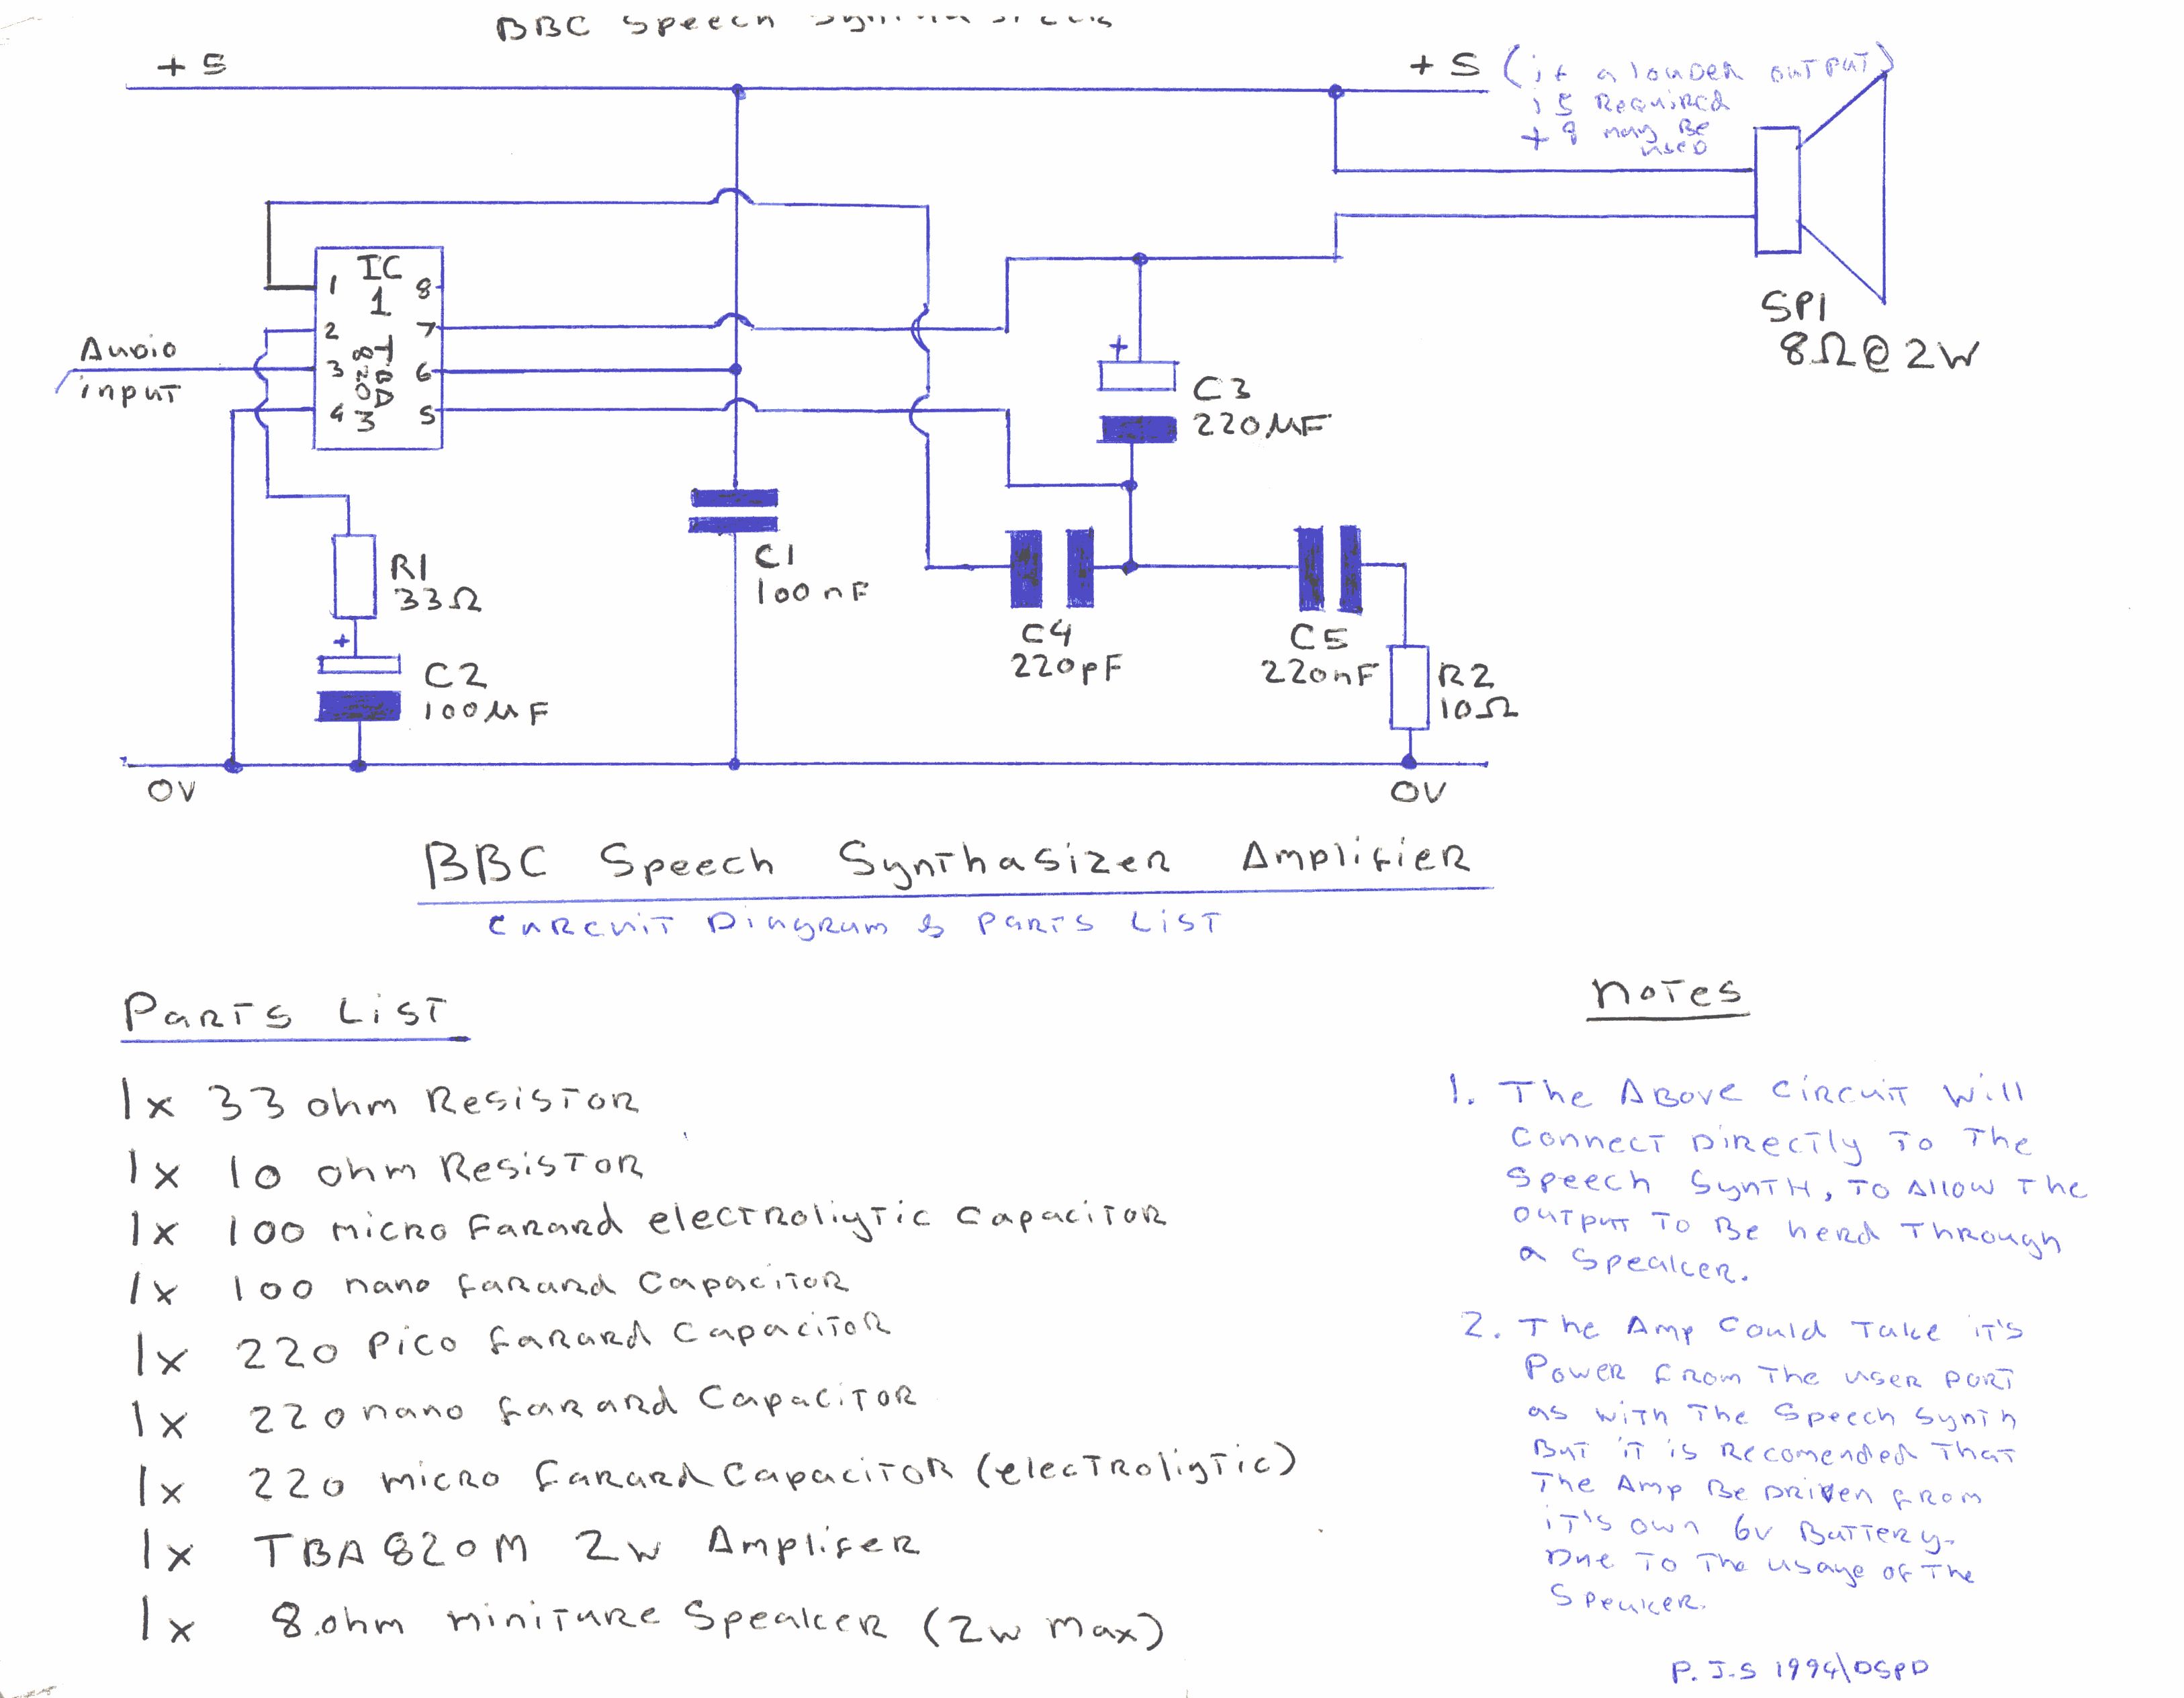 BBC Speech
+5
+5 (if a louder output)
is Required
+9 may Be
used
IC
1
1
2
3
4
8
7
6
5
TBA
820
M
Audio
input
SP1
8Ω@2W
C3
220µF
R1
33Ω
C1
100nF
C4
220pF
C5
220nF
C2
100µF
R2
10Ω
0V
0V
BBC Speech Synthasizer Amplifier
Curcuit Diagram & Parts List
Parts List
1x 33 ohm Resistor
1x 10 ohm Resistor
1x 100 micro Farard electroliytic Capacitor
1x 100 nano farard Capacitor
1x 220 Pico farard Capacitor
1x 220 nano farard Capacitor
1x 220 micro farard Capacitor (electroliytic)
1x TBA820M 2w Amplifer
1x 8.ohm miniture Speaker (2w max)
Notes
1. The Above Circuit Will
Connect Directly To The
Speech Synth, To Allow The
output To Be herd Through
a Speaker.
2. The Amp Could Take it's
Power from The user port
as with The Speech Synth
But it is Recomended That
The Amp Be Driven from
it's own 6v Battery.
Due To The usage of The
Speaker.
P.J.S 1994\DSPD